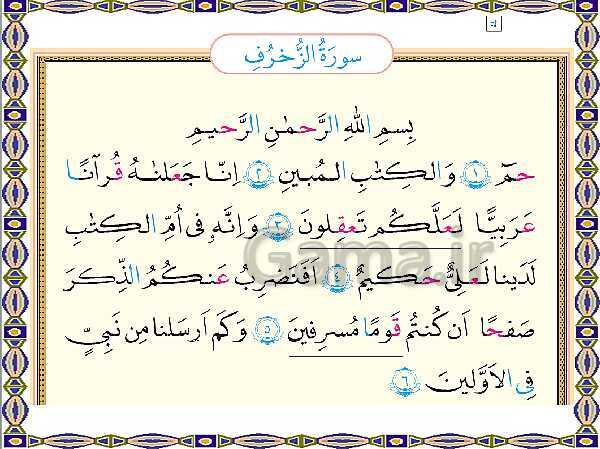 سورَةُ الزُّخرُفِ
بِسمِ اللهِ الرَّحمٰنِ الرَّحیمِ
حمٓ ۝١ وَ الکِتٰبِ المُبینِ ۝٢ اِنّا جَعَلنٰهُ قُرآنًا
عَرَبِیًّا لَعَلَّکُم تَعقِلونَ ۝٣ وَ اِنَّهٗ فی اُمِّ الکِتٰبِ
لَدَینا لَعَلِیٌّ حَکیمٌ ۝٤ اَفَنَضرِبُ عَنکُمُ الذِّکرَ
صَفحًا اَن کُنتُم قَومًا مُسرِفینَ ۝٥ وَ کَم اَرسَلنا مِن نَبِیٍّ
فِی الاَوَّلینَ ۝٦
Gama.ir